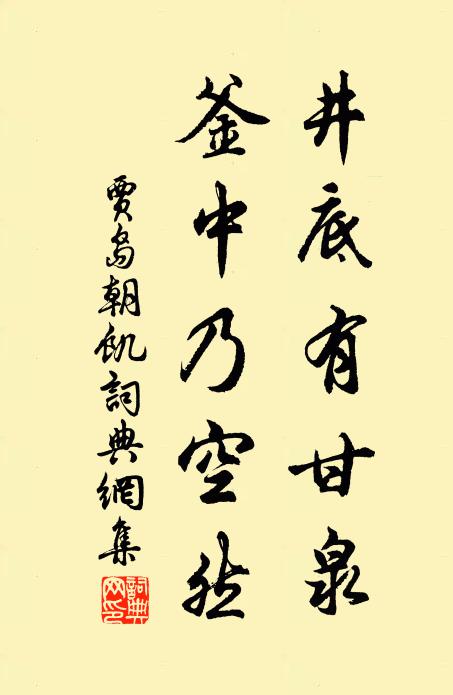 井底有甘泉
釜中乃空然
賈島朝飢詞典網集
詞典网印